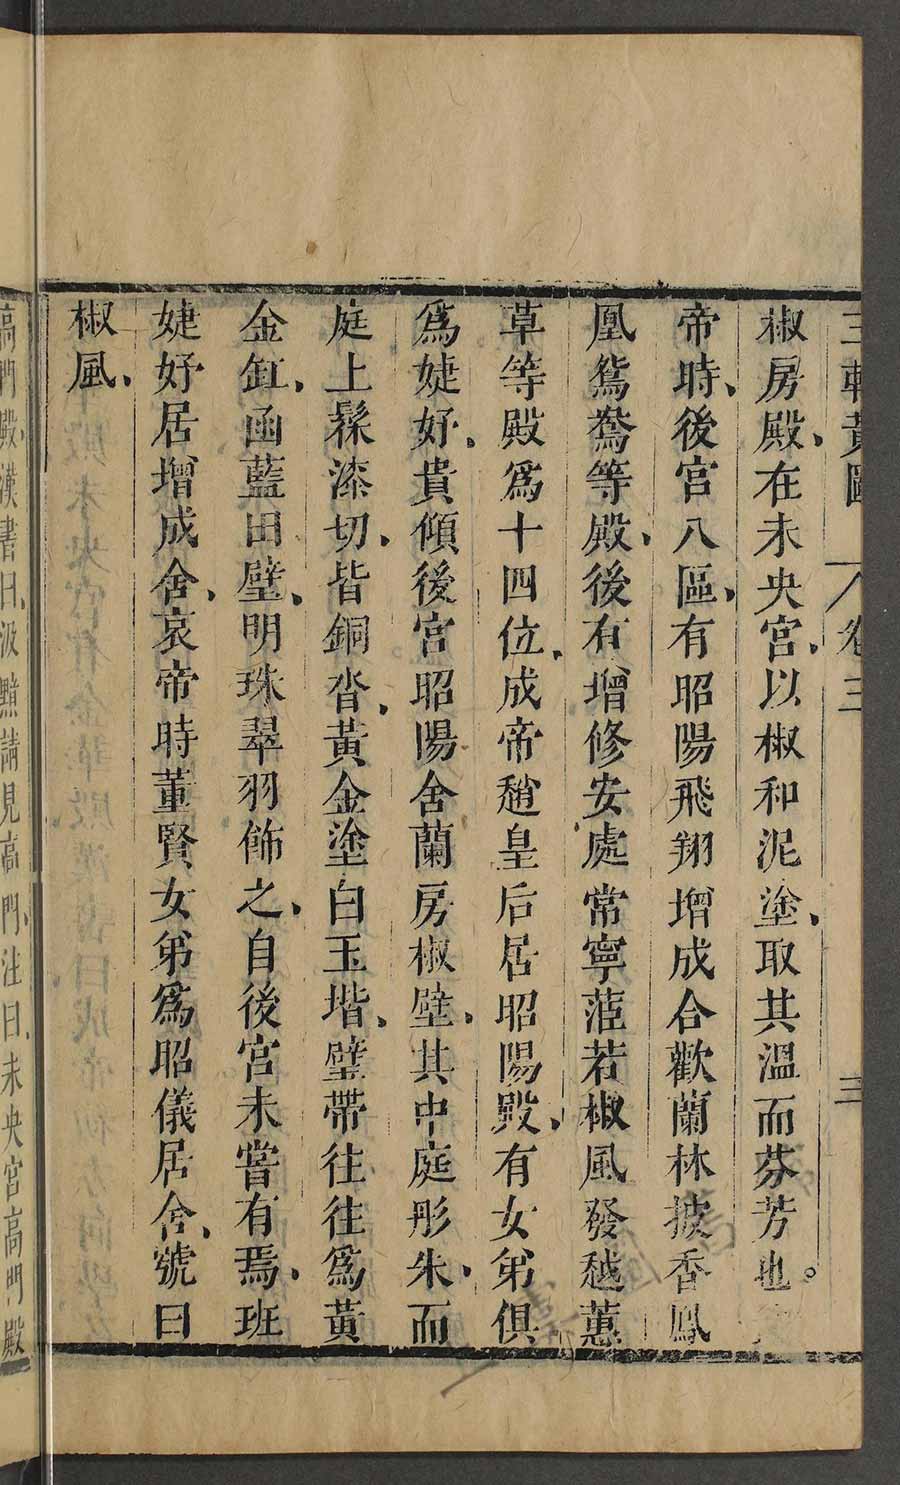 三輔黃圖　卷三　三
椒房殿、在未央宮、以椒和泥塗、取其溫而芬芳也。武
帝時、後宮八區、有昭陽飛翔增成合歡蘭林披香鳳
凰鴛鴦等殿、後有增修安處常寧茝若椒風發越蕙
草等殿爲十四位、成帝趙皇后居昭陽殿、有女弟俱
爲婕妤、貴傾後宮昭陽舍蘭房椒壁、其中庭彤朱、而
庭上髹漆切、皆銅沓、黃金塗白玉堦、壁帶往往爲黃
金釭、函藍田璧、明珠翠羽飾之、自後宮未嘗有焉、班
婕妤居增成舍、哀帝時董賢女弟爲昭儀居舍、號曰
椒風、
高門殿、漢書曰、汲黯請見高門、注曰、未央宮高門殿